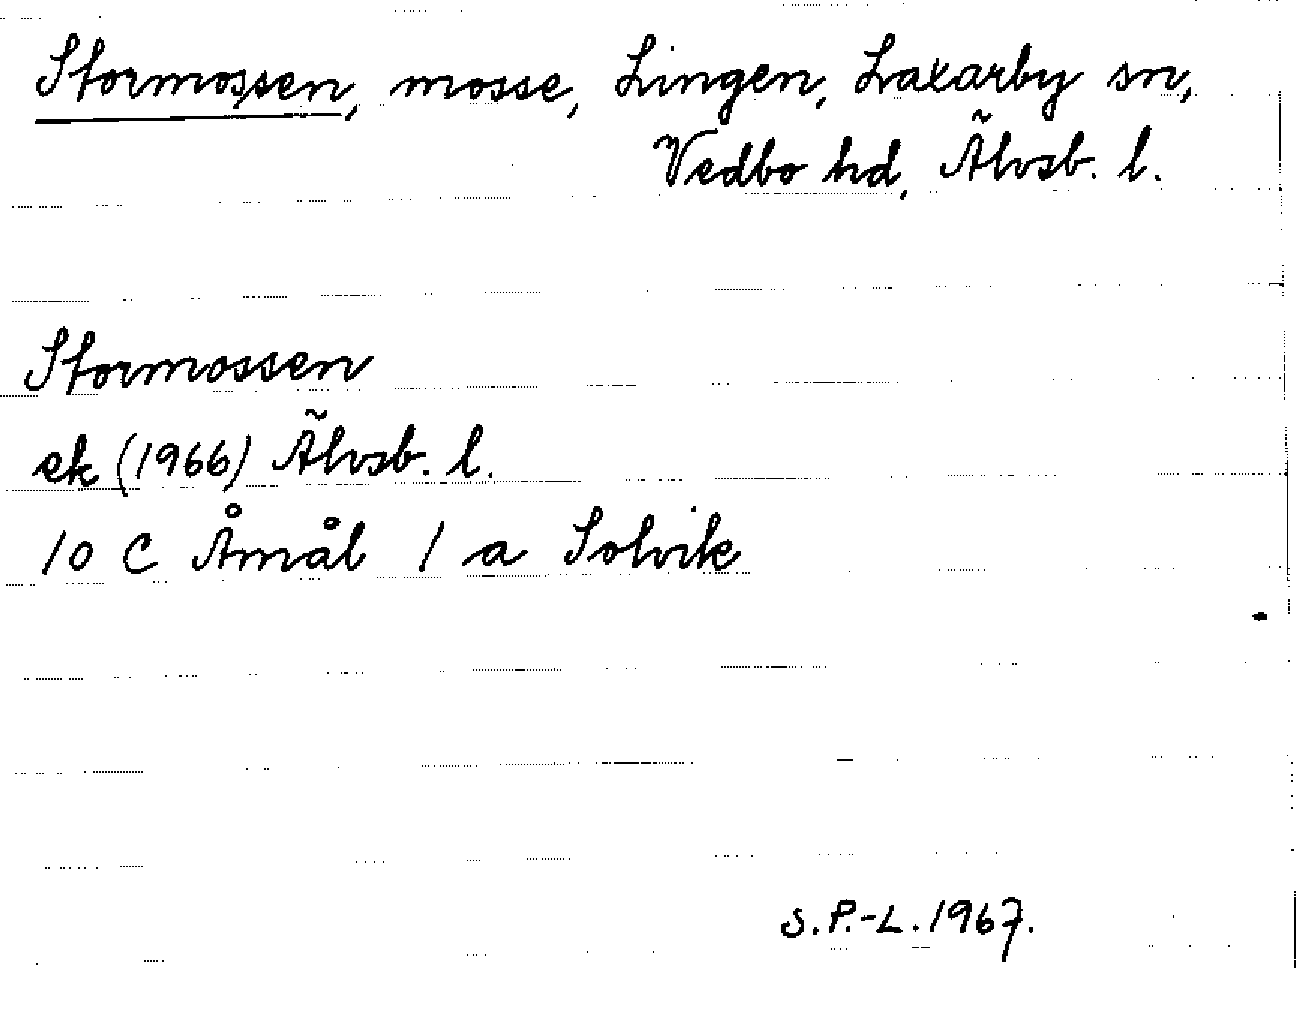 Stormossen, mosse, Lingen, Laxarby sn,
Vedbo hd, Älvsb. l.
Stormossen
ek (1966) Älvsb. l.
10 C Åmål 1 a Solvik
S.P.-L. 1967.